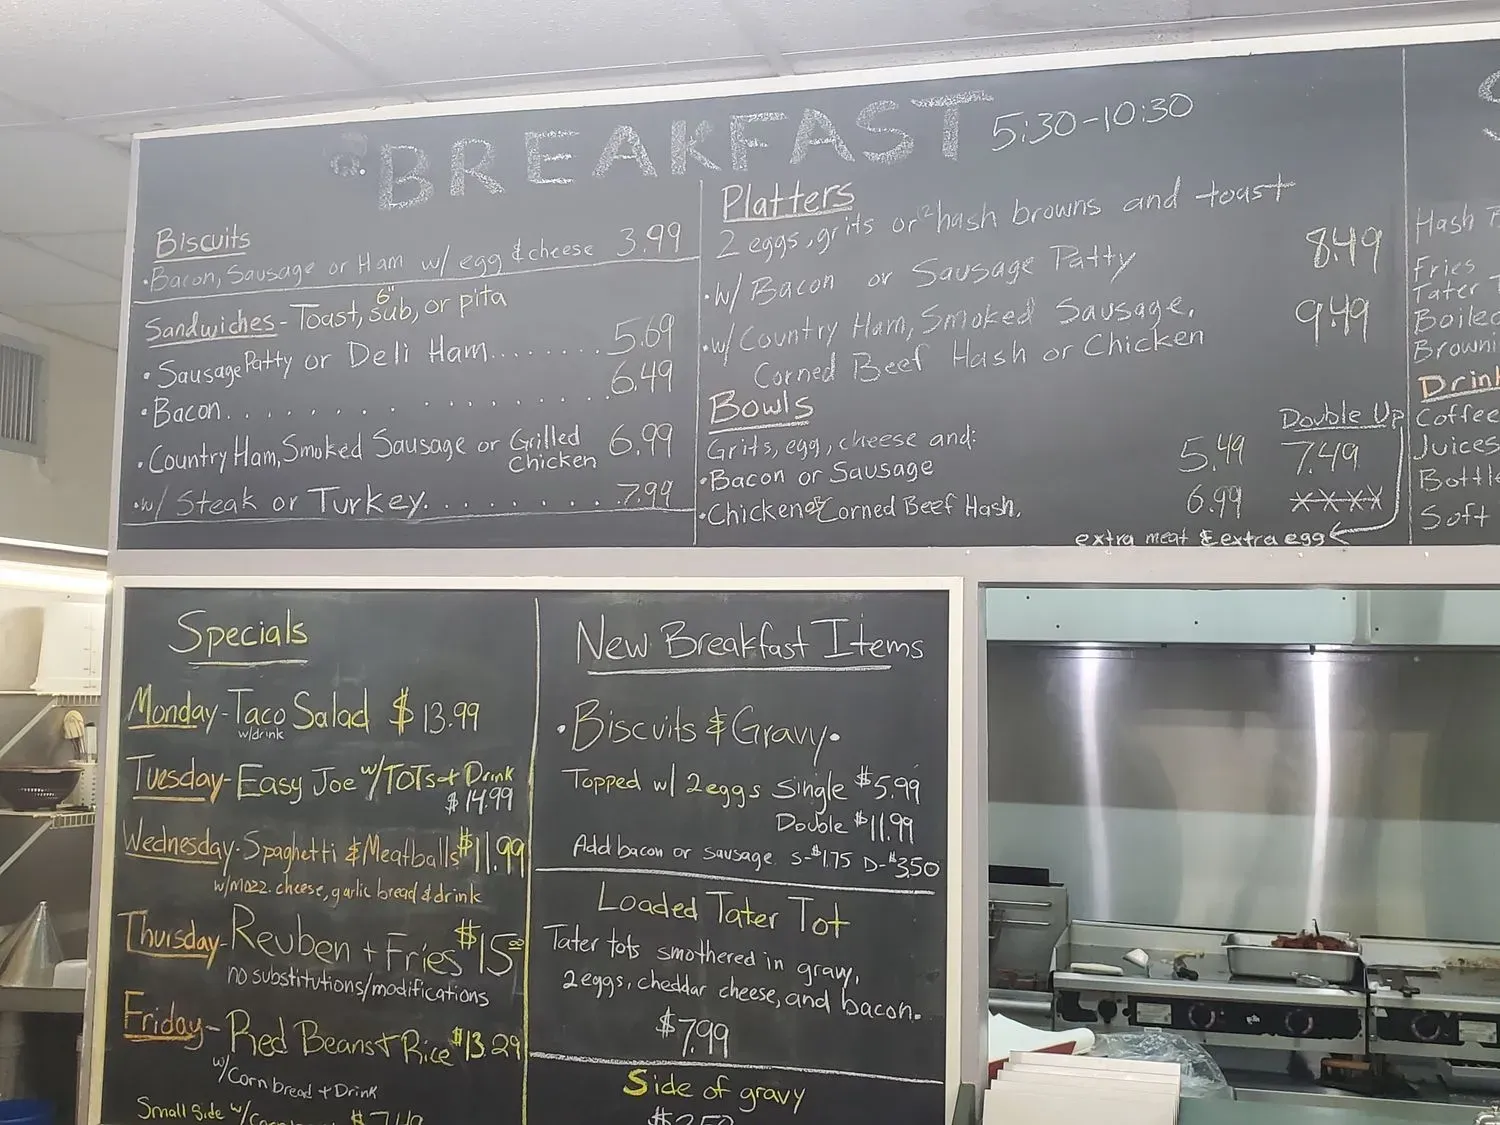 BREAKFAST 5:30-10:30
Biscuits
·Bacon, Sausage or Ham w/ egg & cheese 3.99
Sandwiches - Toast, 6" sub, or pita
·Sausage Patty or Deli Ham........ 5.69
·Bacon.................. 6.49
·Country Ham, Smoked Sausage or Grilled Chicken 6.99
·w/ Steak or Turkey.......... 7.99
Platters
2 eggs, grits or 2 hash browns and toast
·w/ Bacon or Sausage Patty 8.49
·w/ Country Ham, Smoked Sausage, 9.49
Corned Beef Hash or Chicken
Bowls
Double Up
Grits, egg, cheese and:
·Bacon or Sausage 5.49 7.49
·Chicken or Corned Beef Hash. 6.99 xxxx
extra meat & extra egg
Hash
Fries
Tater
Boiled
Coffee
Juices
Soft
Specials
Monday - Taco Salad $13.99
w/drink
Tuesday - Easy Joe w/ TOTs + Drink
$14.99
Wednesday - Spaghetti & Meatballs $11.99
w/mozz. cheese, garlic bread & drink
Thursday - Reuben + Fries $15.00
no substitutions/modifications
Friday - Red Beans + Rice $13.29
w/Cornbread + Drink
Small Side w/ $7.49
New Breakfast Items
·Biscuits & Gravy·
Topped w/ 2 eggs Single $5.99
Double $11.99
Add bacon or sausage S-$1.75 D-$3.50
Loaded Tater Tot
Tater tots smothered in gravy,
2 eggs, cheddar cheese, and bacon.
$7.99
Side of gravy
$2.50